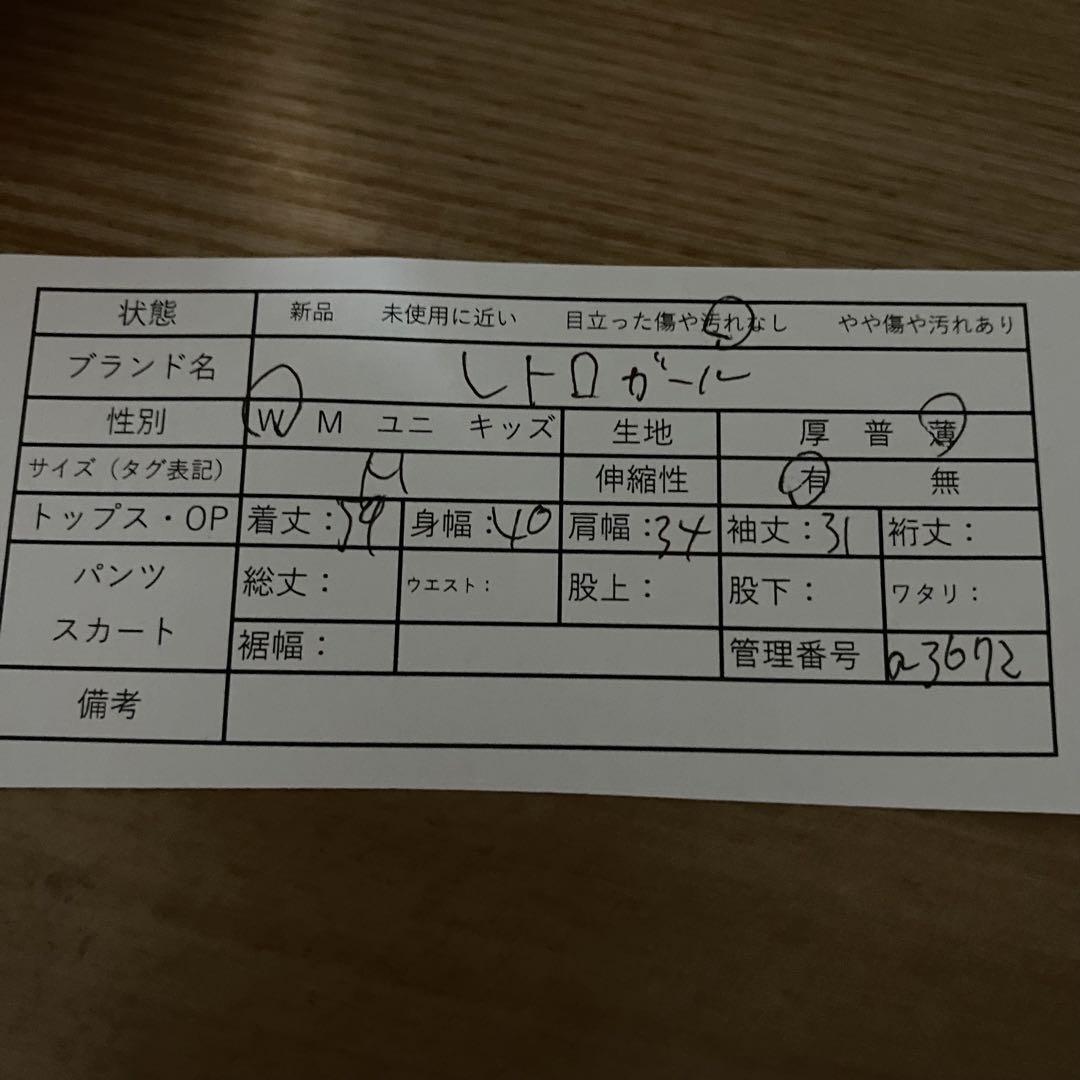 状態 新品 未使用に近い 目立った傷や汚れなし やや傷や汚れあり
ブランド名 レトロガール
性別 W M ユニ キッズ 生地 厚 普 薄
サイズ（タグ表記） M 伸縮性 有 無
トップス・OP 着丈： 身幅：40 肩幅：34 袖丈：31 裄丈：
パンツ 総丈： ウエスト： 股上： 股下： ワタリ：
スカート 裾幅： 管理番号 a3672
備考